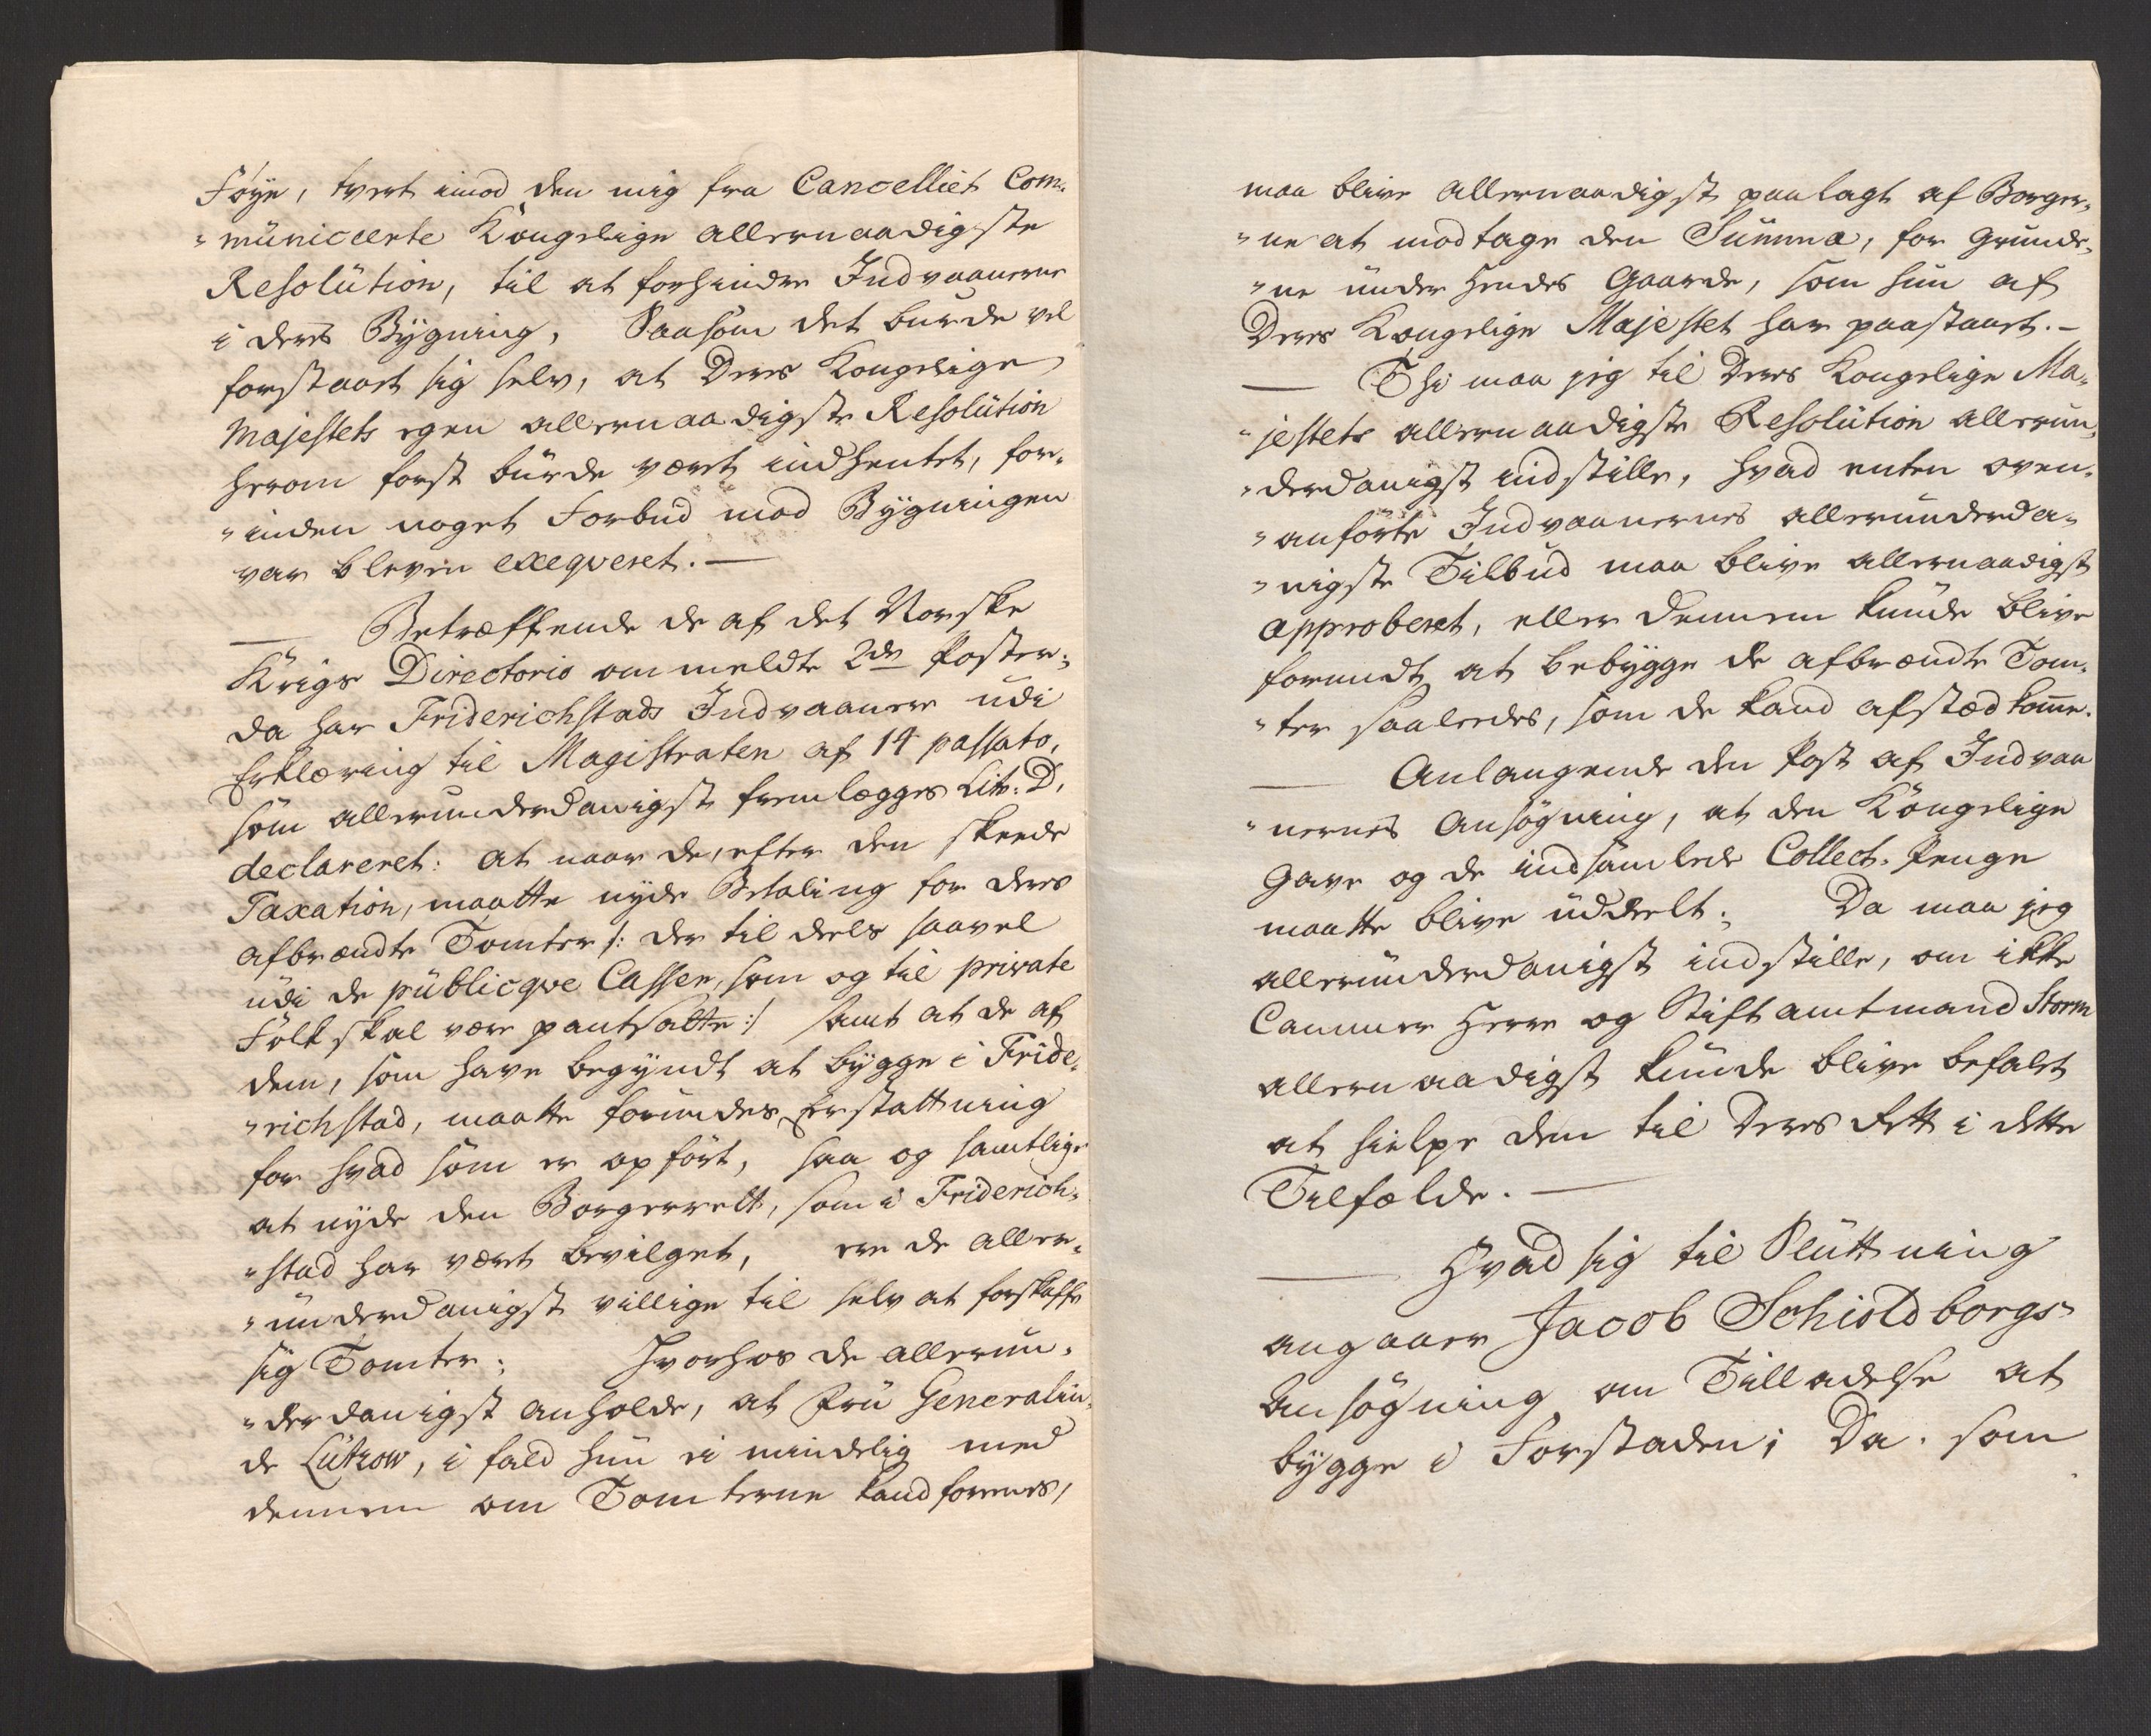 Föye, tvert imod den mig fra Cancelliet Com-
"municerte Kongelige allernaadigste
Resolution, til at forhindre Indvaanerne
i deres Bygning, Saasom det burde vel
forstaaet sig selv, at Deres Kongelige
Majestets egen allernaadigste Resolution
herom forst burde vært indhentet, for-
"inden noget Forbud mod Bygningen
var bleven exeqveret. —
— Betræffende de af det Norske
Krigs Directorio ommeldte 2de Poster;
da har Friderichstads Indvaanere udi
Erklæring til Magistraten af 14 passato,
som allerunderdanigst fremlægges Lit: D.
declareret: at naar de, efter den skeede
Taxation, maatte nyde Betaling for deres
afbrændte Tomter /: der til deels saavel
udi de publicqve Casser, som og til private
Folk skal være pantsatte :/ samt at de af
dem, som have begyndt at bygge i Fride-
"richstad, maatte forundes Erstattning
for hvad som er opfört, saa og samtlige
at nyde den Borgerrett, som i Friderich-
"stad har vært bevilget, ere de aller-
"underdanigst villige til selv at forskaffe
sig Tomter; Hvorhos de allerun-
"derdanigst anholde, at Fru Generalin-
de Lützow, i fald hun ei mindelig med
dennem om Tomterne kand forenes,
maa blive allernaadigst paalagt af Borger-
"ne at modtage den Summa, for Grunde-
"ne under Hendes Gaarde, som hun af
Deres Kongelige Majestet har paastaaet. —
— Thi maa jeg til Deres Kongelige Ma-
"jestets allernaadigste Resolution allerun-
"derdanigst indstille, hvad enten oven-
"anförte Indvaanernes allerunderda-
"nigste Tilbud maa blive allernaadigst
approberet, eller dennem kunde blive
forundt at bebygge de afbrændte Tom-
"ter saaledes, som de kand afsted komme.
— Anlangende den Post af Indvaa
"nernes Ansögning, at den Kongelige
Gave og de indsamlede Collect-Penge
maatte blive uddeelt; Da maa jeg
allerunderdanigst indstille, om ikke
Cammer Herre og Stiftamtmand Storm
allernaadigst kunde blive befalet
at hielpe dem til Deres Rett i dette
Tilfælde. —
— Hvad sig til Sluttning
angaaer Jacob Schioldborgs
Ansögning om Tilladelse at
bygge i Forstaden; Da som